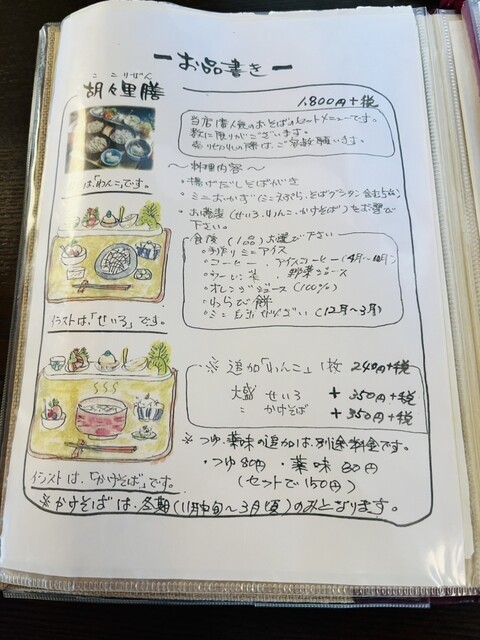 ーお品書きー
ここりぜん
胡々里膳
1,800円+税
当店1番人気のおそばのセットメニューです。
数に限りがございます。
売り切れの際は、ご容赦願います。
写真は、「わんこ」です。
～料理内容～
・揚げだしそばがき
・ミニおかず(ミニ天ぷら、そばグラタン含む5品)
・お蕎麦(せいろ、わんこ、かけそば)をお選び
下さい。
食後(1品)お選び下さい
・手作りミニアイス
・コーヒー・アイスコーヒー
・ウーロン茶・野菜ジュース
・オレンジジュース(100%)
・わらび餅
・ミニもちぜんざい(12月～3月)
イラストは、「せいろ」です。
※追加「わんこ」1枚 240円+税
大盛 せいろ +350円+税
〃 かけそば +350円+税
※つゆ、薬味の追加は、別途料金です。
・つゆ80円・薬味80円
(セットで150円)
イラストは、「かけそば」です。
※かけそばは、冬期(11月中旬～3月頃)のみとなります。